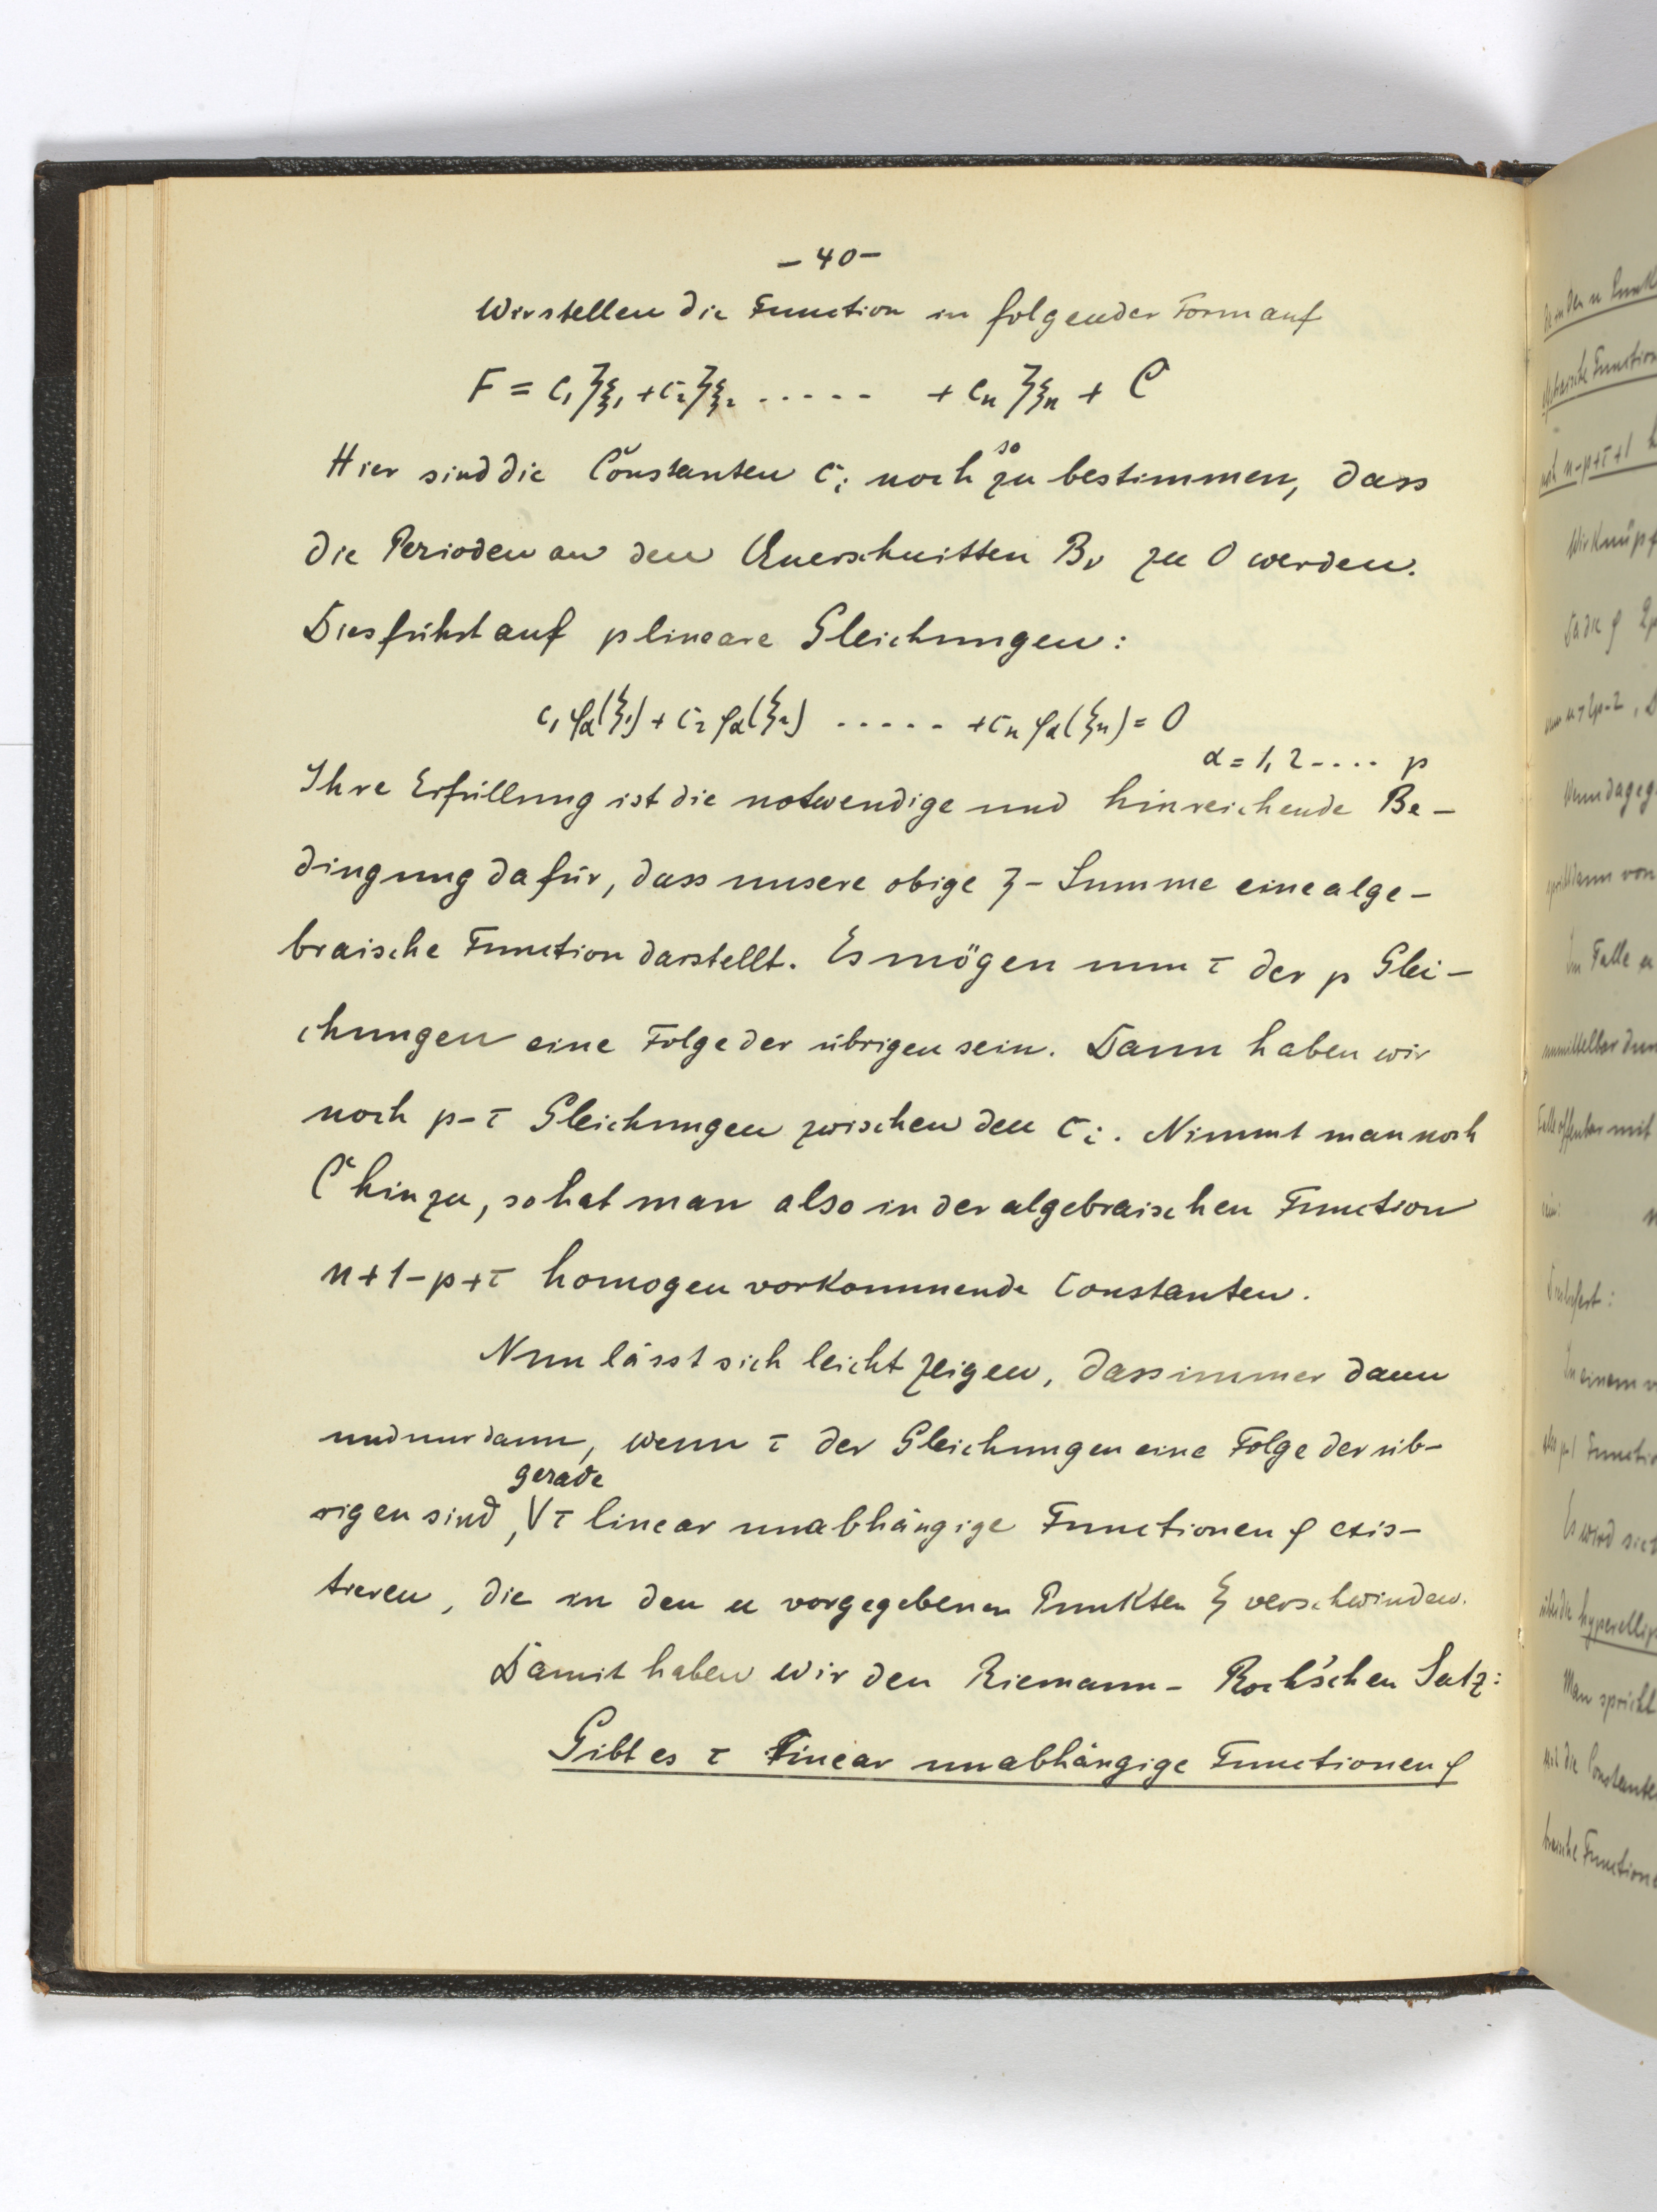 – 40 –
Wir stellen die Function in folgender Form auf
F = c₁ ʒ_ξ₁ + c₂ ʒ_ξ₂ ..... + cₙ ʒ_ξₙ + C
so
Hier sind die Constanten cᵢ noch zu bestimmen, dass
die Perioden an den Querschnitten Bᵥ zu 0 werden.
Dies führt auf p lineare Gleichungen:
c₁ φ_α(ξ₁) + c₂ φ_α(ξ₂) ..... + cₙ φ_α(ξₙ) = 0
α = 1, 2 .... p
Ihre Erfüllung ist die notwendige und hinreichende Be-
dingung dafür, dass unsere obige ʒ-Summe eine alge-
braische Function darstellt. Es mögen nun τ der p Glei-
chungen eine Folge der übrigen sein. Dann haben wir
noch p-τ Gleichungen zwischen den cᵢ. Nimmt man noch
C hinzu, so hat man also in der algebraischen Function
n+1-p+τ homogen vorkommende Constanten.
Nun lässt sich leicht zeigen, dass immer dann
und nur dann, wenn τ der Gleichungen eine Folge der üb-
gerade
rigen sind, V τ linear unabhängige Functionen φ exis-
tieren, die in den n vorgegebenen Punkten ξ verschwinden.
Damit haben wir den Riemann-Roch'schen Satz:
Gibt es τ linear unabhängige Functionen φ
Wir knüpf
Im Falle n
Es wird sich
über die hyperellip
Man spricht
mit die Constante
braische Function